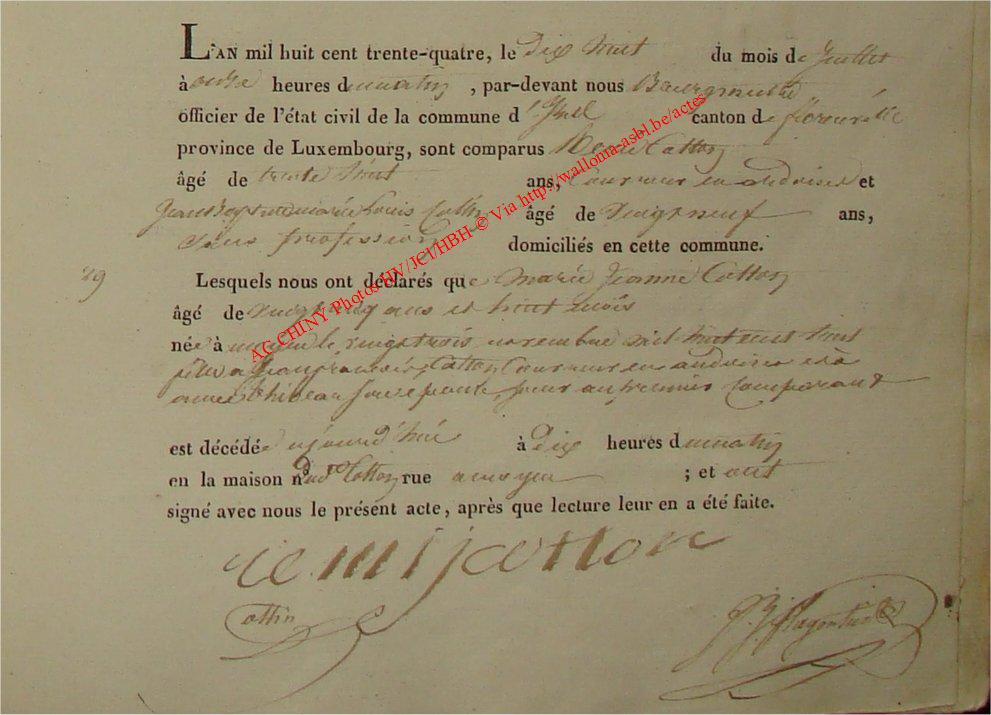 L'AN mil huit cent trente-quatre, le dix huit du mois de juillet
à onze heures du matin, par-devant nous Bourgmestre
officier de l'état civil de la commune d' canton de florenville
province de Luxembourg, sont comparus Cotton
âgé de trente huit ans, Couvreur en ardoises et
Jean Baptiste marie Louis Cottin âgé de vingt neuf ans,
sans profession domiciliés en cette commune.
29
Lesquels nous ont déclarés que marie Jeanne Cotton
âgé de vingt cinq ans et huit mois
née à le vingt trois novembre mil huit cent huit
fille de Jean françois Cotton Couvreur en ardoises et à
anne thibeau soeur au premier Comparant
est décédée aujourd'hui à dix heures du matin
en la maison nº dud Cotton rue à moyen ; et ont
signé avec nous le présent acte, après que lecture leur en a été faite.
remi j cotton
Cottin
AC CHINY Photos HV/JCI/HBH © Via http://wallonia-asbl.be/actes